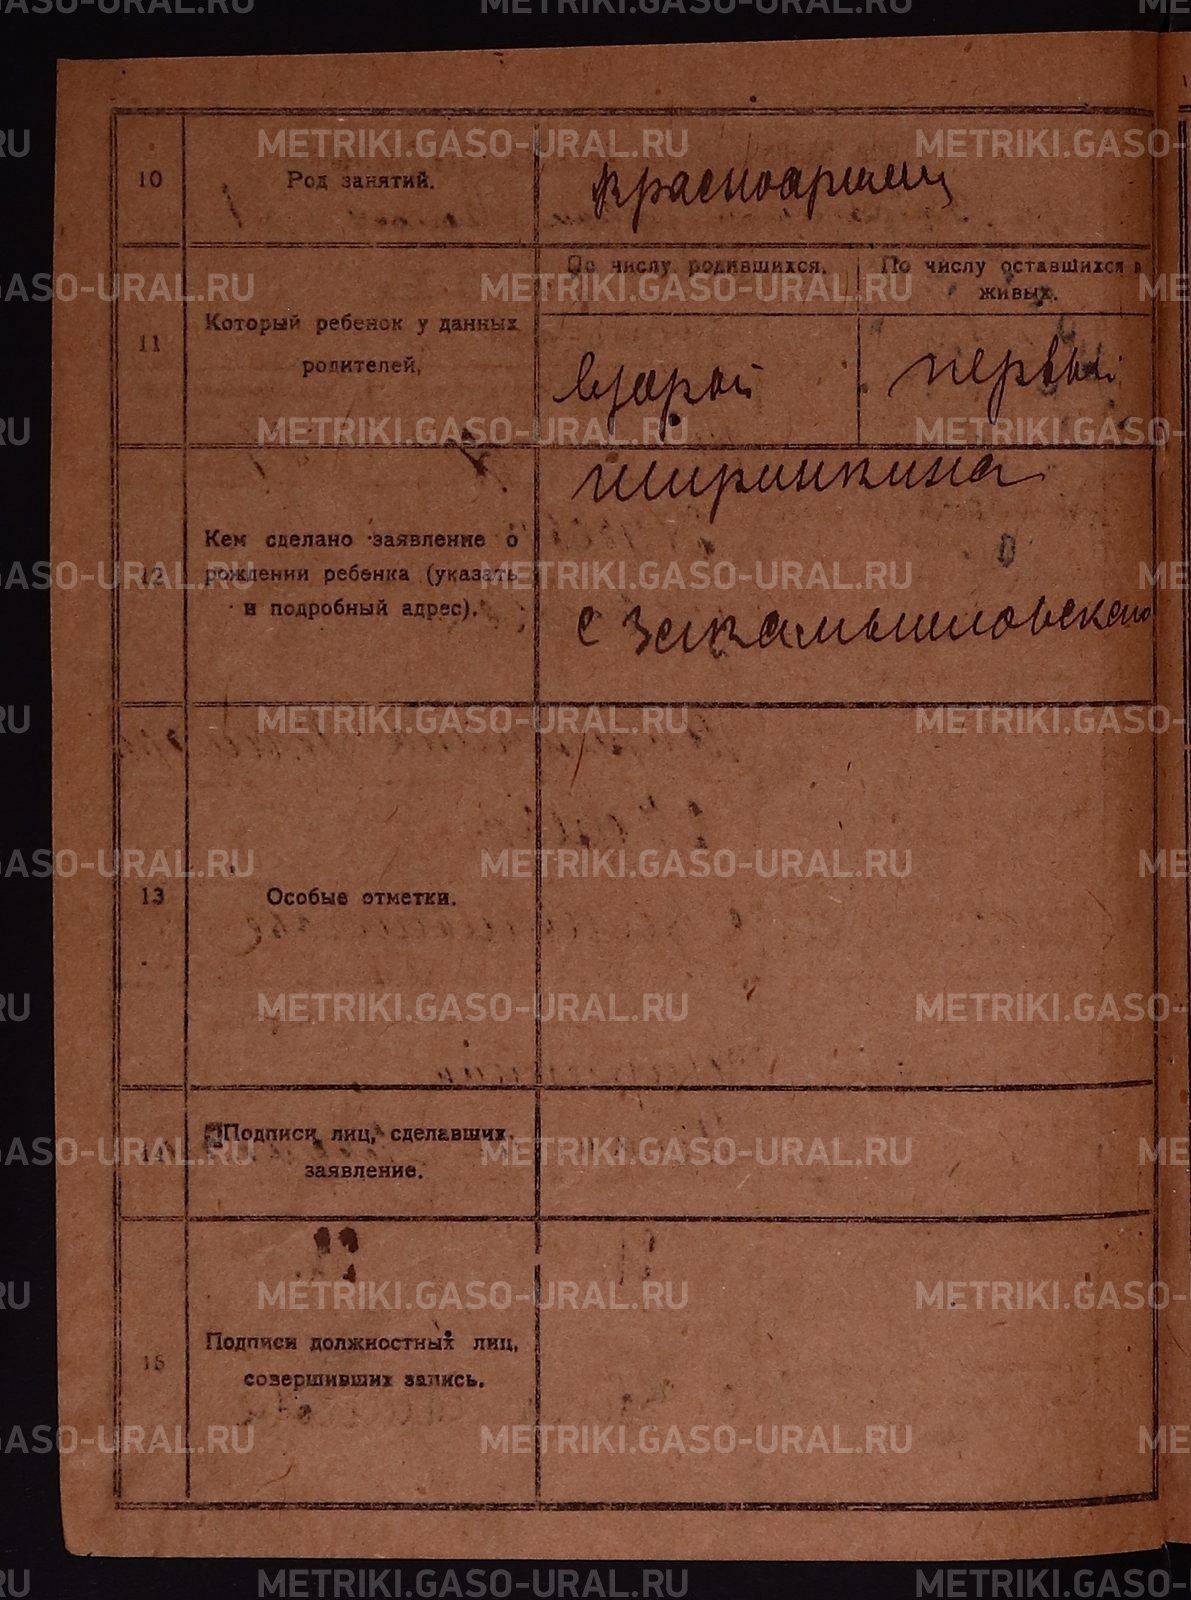 10
Род занятий.
красноармеец
11
Который ребенок у данных
родителей,
По числу родившихся.
По числу оставшихся в
живых.
второй
первый
12
Кем сделано заявление о
рождении ребенка (указать
и подробный адрес).
Ширинкина
с Закамышловского
13
Особые отметки.
14
Подписи лиц, сделавших
заявление.
15
Подписи должностных лиц,
совершивших запись.
METRIKI.GASO-URAL.RU